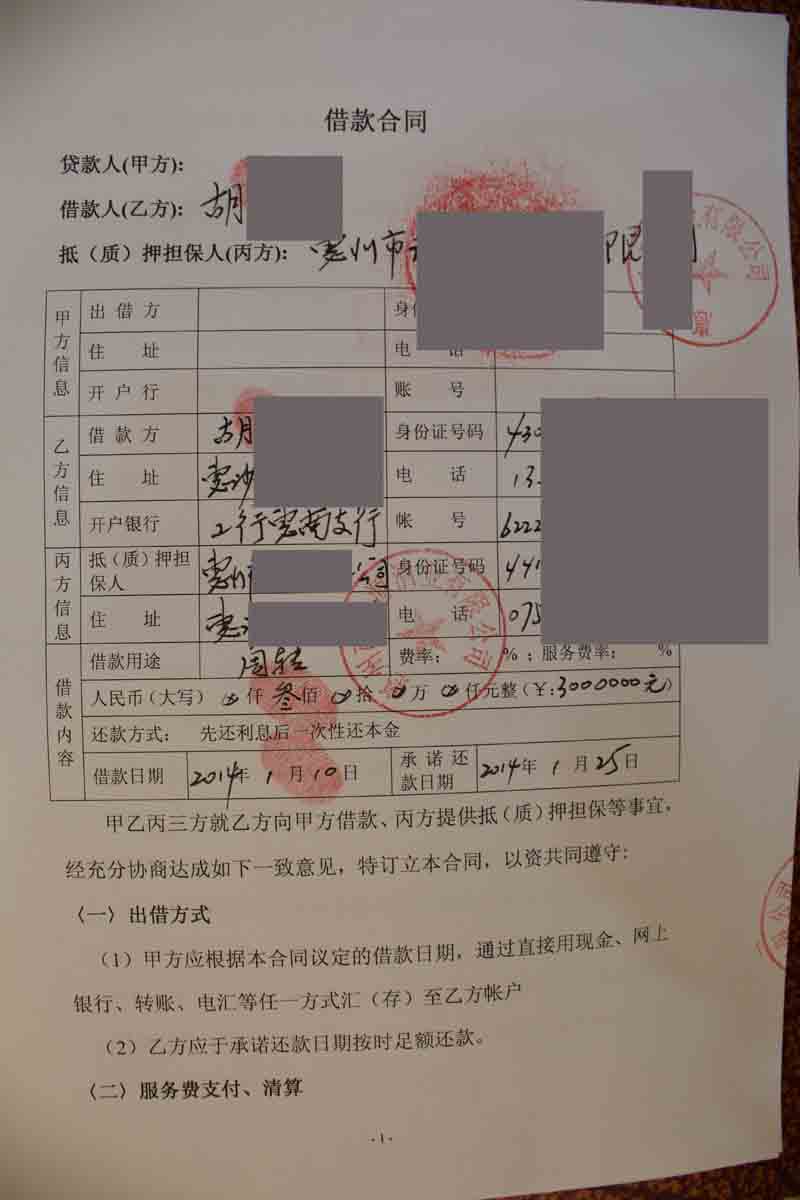 借款合同
贷款人(甲方):
借款人(乙方): 胡
抵（质）押担保人(丙方): 惠州市
有限公司
甲方信息
出 借 方
身
住 址
电 话
开 户 行
账 号
乙方信息
借 款 方 胡
身份证号码 430
住 址 惠沙
电 话 13
开户银行 工行惠南支行
帐 号 6222
丙方信息
抵（质）押担保人 惠州 公司
身份证号码 441
住 址 惠
电 话 075
有限公司
借款内容
借款用途 周转
费率: %；服务费率: %
人民币（大写） 仟 叁佰 拾 万 仟元整（￥:3000000元）
还款方式: 先还利息后一次性还本金
借款日期 2014年 1 月 10 日
承诺还款日期 2014年 1 月 25 日
甲乙丙三方就乙方向甲方借款、丙方提供抵（质）押担保等事宜，
经充分协商达成如下一致意见，特订立本合同，以资共同遵守:
〈一〉出借方式
（1）甲方应根据本合同议定的借款日期，通过直接用现金、网上
银行、转账、电汇等任一方式汇（存）至乙方帐户
（2）乙方应于承诺还款日期按时足额还款。
〈二〉服务费支付、清算
·1·